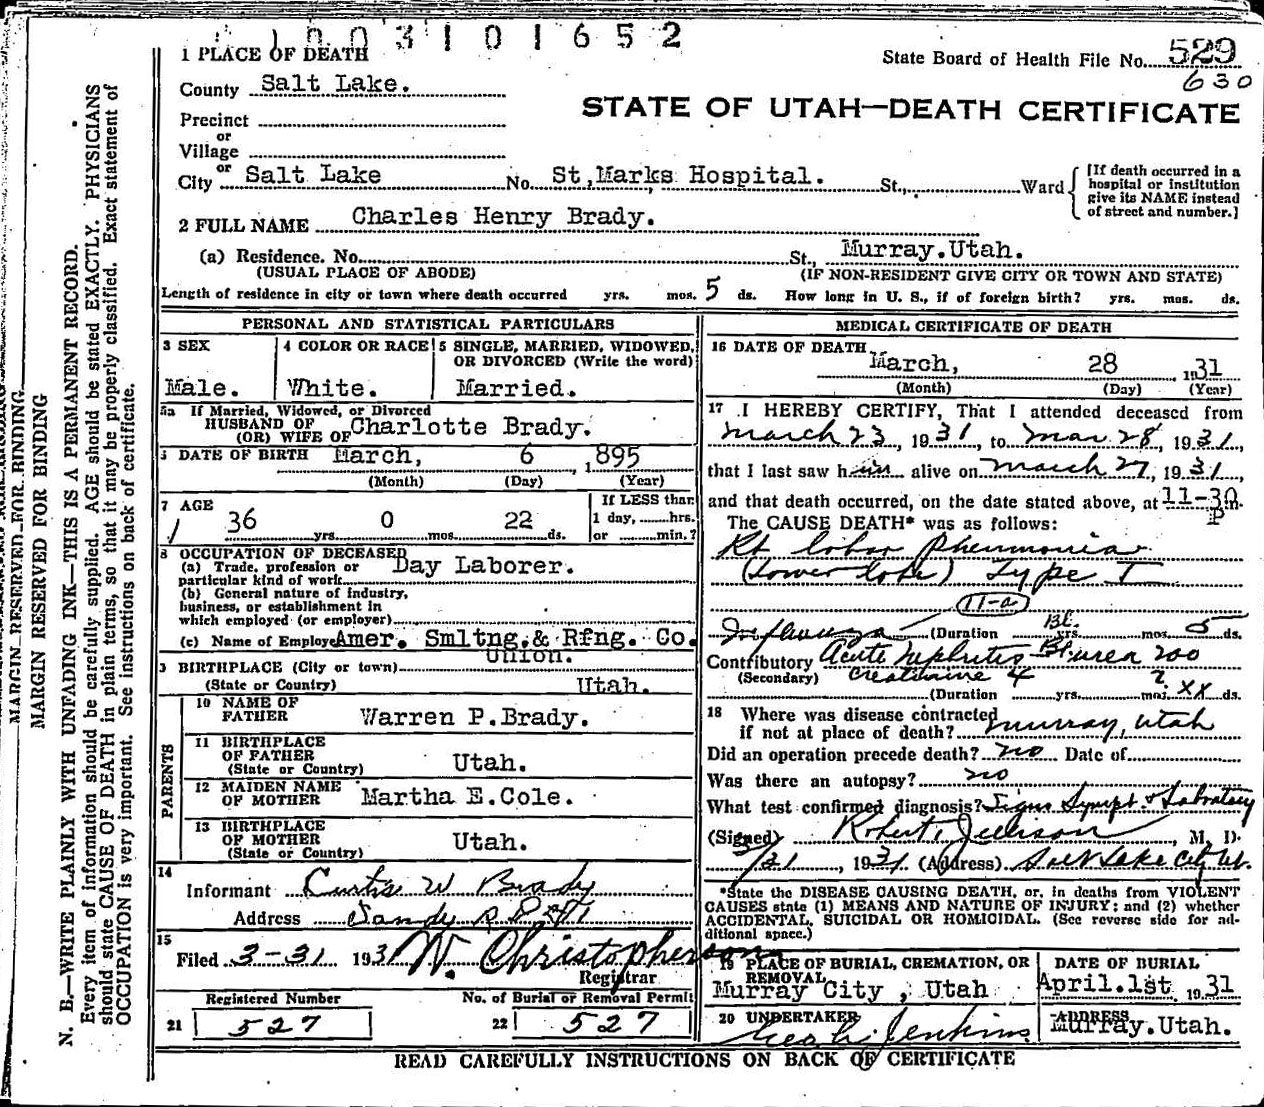 1003101652
1 PLACE OF DEATH
State Board of Health File No. 529
630
County Salt Lake.
STATE OF UTAH—DEATH CERTIFICATE
Precinct
or
Village
or
City Salt Lake No. St,Marks Hospital. St., Ward
[If death occurred in a
hospital or institution
give its NAME instead
of street and number.]
2 FULL NAME Charles Henry Brady.
(a) Residence. No. St., Murray.Utah.
(USUAL PLACE OF ABODE) (IF NON-RESIDENT GIVE CITY OR TOWN AND STATE)
Length of residence in city or town where death occurred yrs. mos. 5 ds. How long in U. S., if of foreign birth? yrs. mos. ds.
PERSONAL AND STATISTICAL PARTICULARS
3 SEX
Male.
4 COLOR OR RACE
White.
5 SINGLE, MARRIED, WIDOWED,
OR DIVORCED (Write the word)
Married.
5a If Married, Widowed, or Divorced
HUSBAND OF
(OR) WIFE OF Charlotte Brady.
6 DATE OF BIRTH March, 6, 1895
(Month) (Day) (Year)
7 AGE
36 yrs. 0 mos. 22 ds.
If LESS than
1 day, hrs.
or min.?
8 OCCUPATION OF DECEASED
(a) Trade, profession or
particular kind of work Day Laborer.
(b) General nature of industry,
business, or establishment in
which employed (or employer)
(c) Name of Employer Amer. Smltng.& Rfng. Co.
9 BIRTHPLACE (City or town) Union.
(State or Country) Utah.
PARENTS
10 NAME OF
FATHER Warren P.Brady.
11 BIRTHPLACE
OF FATHER
(State or Country) Utah.
12 MAIDEN NAME
OF MOTHER Martha E.Cole.
13 BIRTHPLACE
OF MOTHER
(State or Country) Utah.
14
Informant Curtis W Brady
Address Sandy R
15
Filed 3-31 1931 W. Christopherson
Registrar
Registered Number No. of Burial or Removal Permit
21 527 22 527
MEDICAL CERTIFICATE OF DEATH
16 DATE OF DEATH
March, 28 1931
(Month) (Day) (Year)
17 I HEREBY CERTIFY, That I attended deceased from
March 23, 1931, to Mar 28, 1931,
that I last saw him alive on March 27, 1931,
and that death occurred, on the date stated above, at 11-30 P m.
The CAUSE DEATH* was as follows:
Rt lobar pneumonia
(Lower lobe) Type I
11-a
Influenza (Duration yrs. mos. 5 ds.
Bl.
Contributory Acute Nephritis Bl. urea 200
(Secondary) Creatinine 4
(Duration yrs. mos. ? xx ds.
18 Where was disease contracted
if not at place of death? Murray, Utah
Did an operation precede death? no Date of
Was there an autopsy? no
What test confirmed diagnosis? Signs Sympt & Laboratory
(Signed) Robert Jellison, M. D.
3/31, 1931 (Address) Salt Lake City Ut.
*State the DISEASE CAUSING DEATH, or, in deaths from VIOLENT
CAUSES state (1) MEANS AND NATURE OF INJURY; and (2) whether
ACCIDENTAL, SUICIDAL OR HOMICIDAL. (See reverse side for ad-
ditional space.)
19 PLACE OF BURIAL, CREMATION, OR
REMOVAL
Murray City , Utah
DATE OF BURIAL
April.1st 1931
20 UNDERTAKER
Jenkins
ADDRESS
Murray.Utah.
READ CAREFULLY INSTRUCTIONS ON BACK OF CERTIFICATE
MARGIN RESERVED FOR BINDING
MARGIN RESERVED FOR BINDING
N. B.—WRITE PLAINLY WITH UNFADING INK—THIS IS A PERMANENT RECORD.
Every item of information should be carefully supplied. AGE should be stated EXACTLY. PHYSICIANS
should state CAUSE OF DEATH in plain terms, so that it may be properly classified. Exact statement of
OCCUPATION is very important. See instructions on back of certificate.